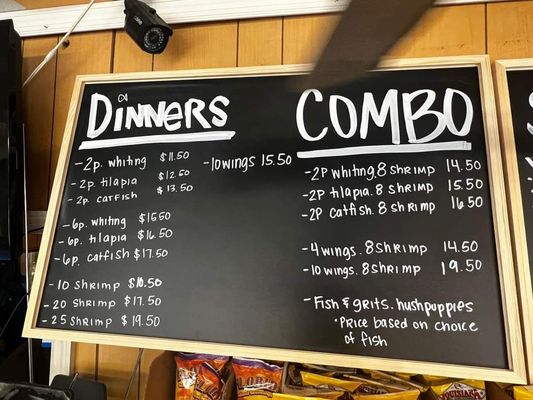 DINNERS
- 2p. whiting $11.50
- 2p. tilapia $12.50
- 2p. catfish $13.50
- 6p. whiting $15.50
- 6p. tilapia $16.50
- 6p. catfish $17.50
- 10 SHRIMP $10.50
- 20 SHRIMP $17.50
- 25 SHRIMP $19.50
- 10 wings 15.50
COMBO
- 2P whiting. 8 SHRIMP 14.50
- 2P tilapia. 8 SHRIMP 15.50
- 2P catfish. 8 SHRIMP 16.50
- 4 wings. 8 SHRIMP 14.50
- 10 wings. 8 SHRIMP 19.50
- Fish & grits. hushpuppies
*Price based on choice
of fish
LOUISIANA